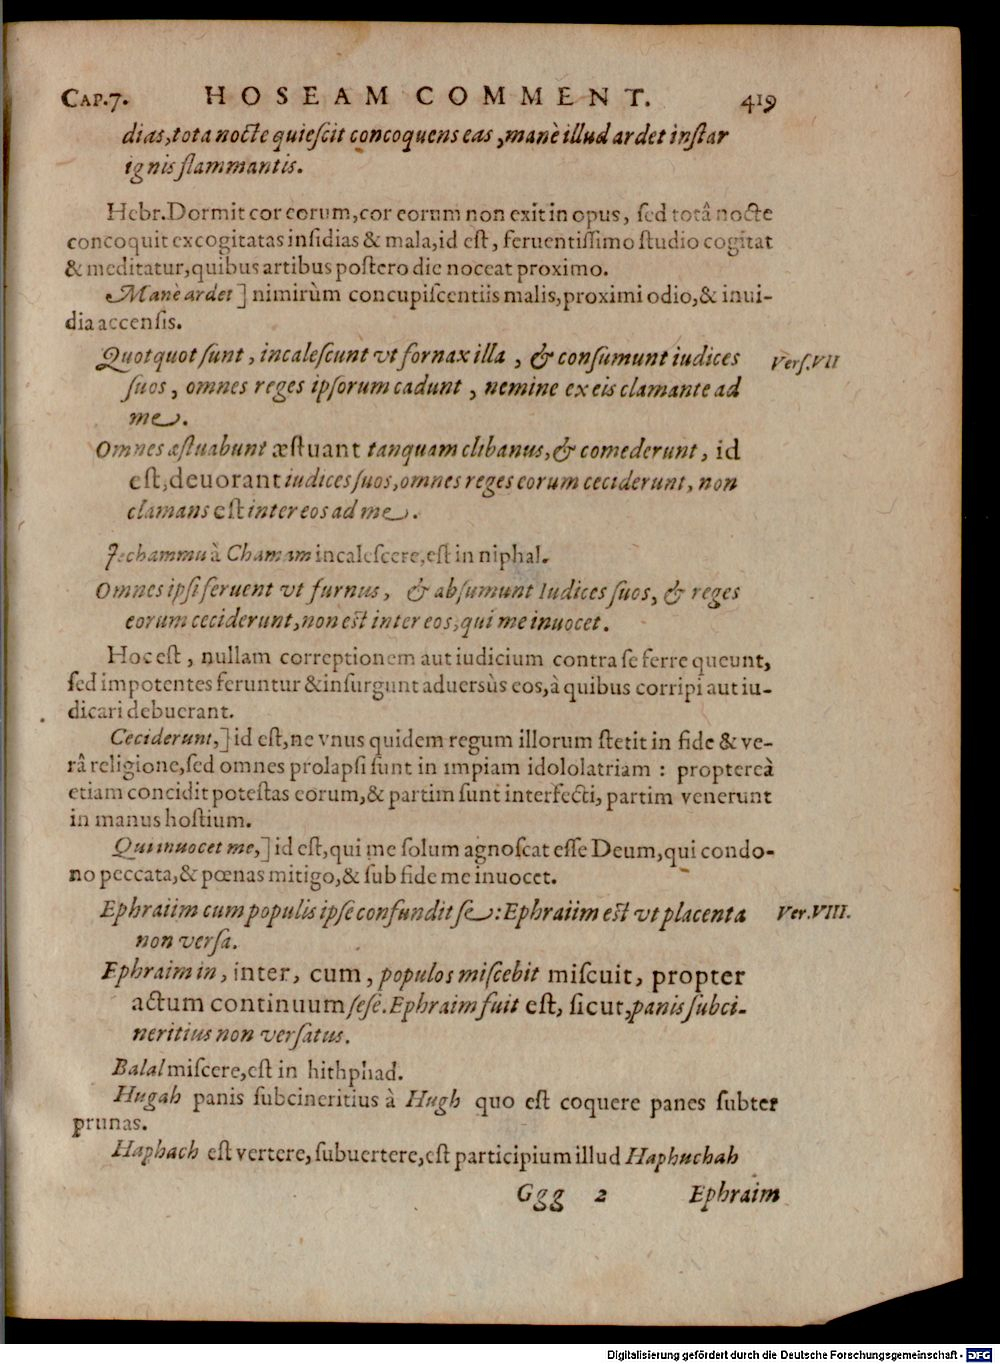 CAP.7. HOSEAM COMMENT. 419
dias,tota nocte quieſcit concoquens eas ,manè illud ardet inſtar
ignis flammantis.
Hebr.Dormit cor eorum,cor eorum non exit in opus, ſed totâ nocte
concoquit excogitatas inſidias & mala,id eſt, feruentiſſimo ſtudio cogitat
& meditatur,quibus artibus poſtero die noceat proximo.
Manè ardet] nimirùm concupiſcentiis malis,proximi odio,& inui-
dia accenſis.
Quotquot ſunt, incaleſcunt vt fornax illa , & conſumunt iudices Verſ.VII
ſuos, omnes reges ipſorum cadunt , nemine ex eis clamante ad
me.
Omnes æſtuabunt æſtuant tanquam clibanus,& comederunt, id
eſt,deuorant iudices ſuos,omnes reges eorum ceciderunt, non
clamans eſt inter eos ad me.
Jechammu à Chamam incaleſcere,eſt in niphal.
Omnes ipſi feruent vt furnus, & abſumunt Iudices ſuos, & reges
eorum ceciderunt,non eſt inter eos,qui me inuocet.
Hoc eſt, nullam correptionem aut iudicium contra ſe ferre queunt,
ſed impotentes feruntur & inſurgunt aduersùs eos,à quibus corripi aut iu-
dicari debuerant.
Ceciderunt,] id eſt,ne vnus quidem regum illorum ſtetit in fide & ve-
râ religione,ſed omnes prolapſi ſunt in impiam idololatriam : proptereà
etiam concidit poteſtas eorum,& partim ſunt interfecti, partim venerunt
in manus hoſtium.
Qui inuocet me,] id eſt,qui me ſolum agnoſcat eſſe Deum,qui condo-
no peccata,& pœnas mitigo,& ſub fide me inuocet.
Ephraiim cum populis ipſe confundit ſe:Ephraiim eſt vt placenta Ver.VIII.
non verſa.
Ephraim in, inter, cum, populos miſcebit miſcuit, propter
actum continuum ſeſe.Ephraim fuit eſt, ſicut,panis ſubci-
neritius non verſatus.
Balal miſcere,eſt in hithphad.
Hugah panis ſubcineritius à Hugh quo eſt coquere panes ſubter
prunas.
Haphach eſt vertere,ſubuertere,eſt participium illud Haphuchah
Ggg 2 Ephraim
Digitalisierung gefördert durch die Deutsche Forschungsgemeinschaft - DFG